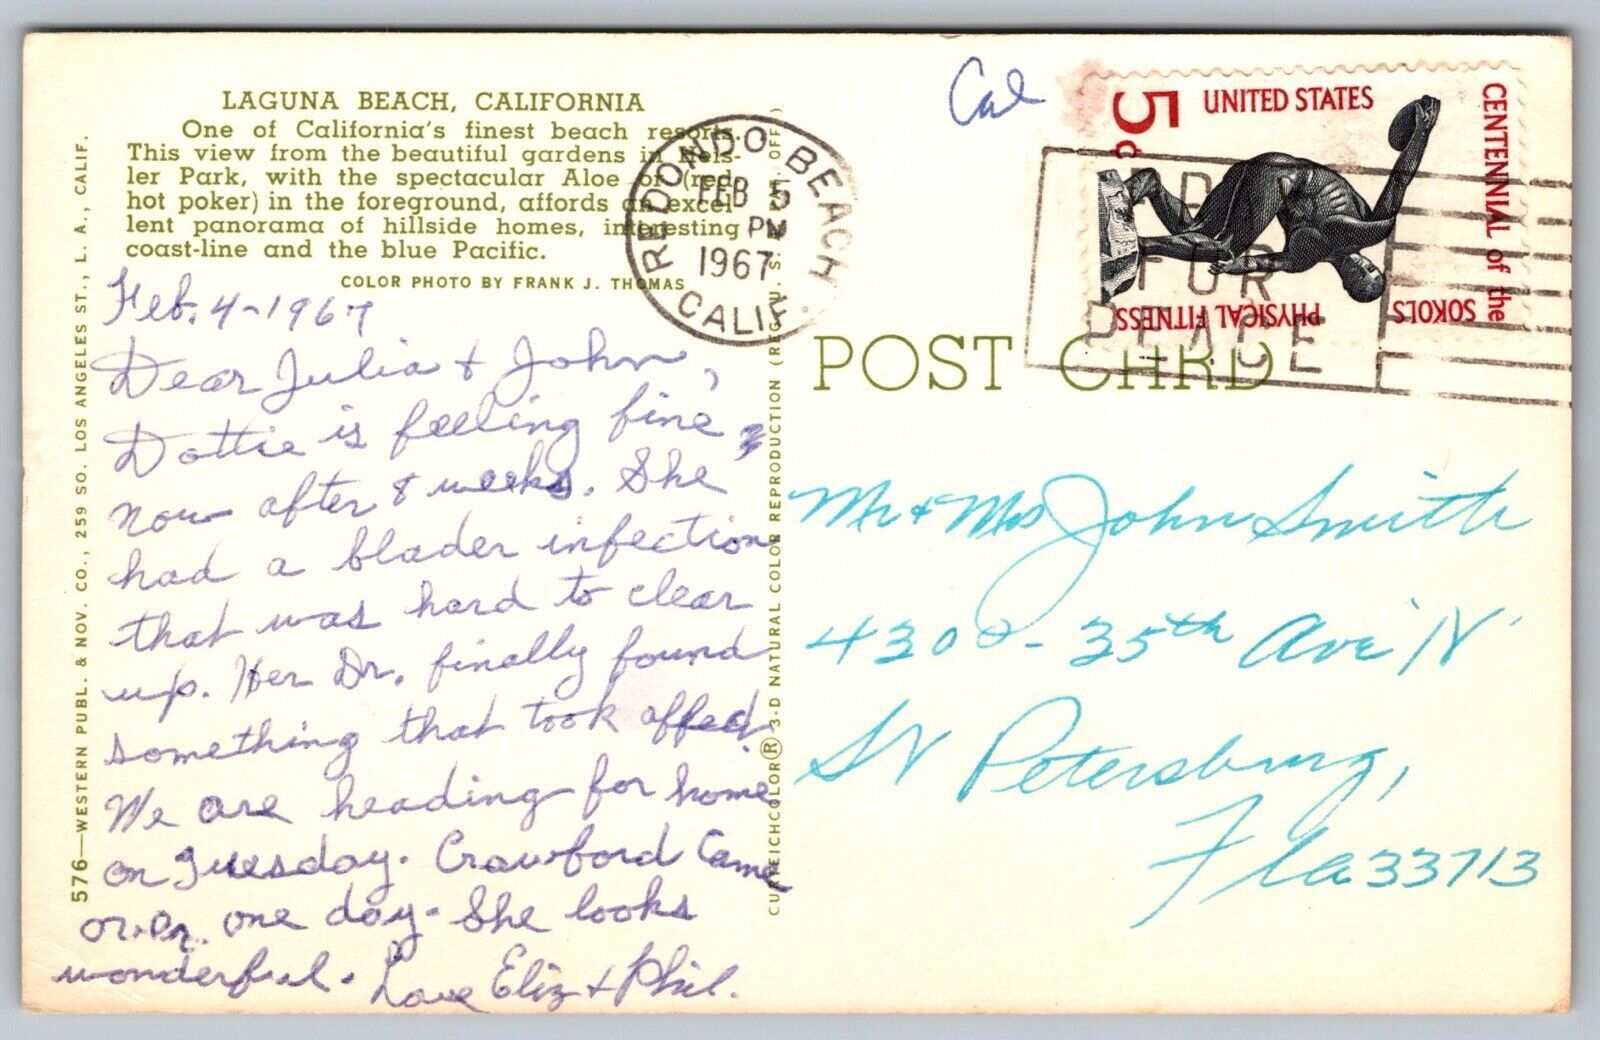 LAGUNA BEACH, CALIFORNIA
One of California's finest beach resorts.
This view from the beautiful gardens in Heis-
ler Park, with the spectacular Aloe or (red
hot poker) in the foreground, affords an excel
lent panorama of hillside homes, interesting
coast-line and the blue Pacific.
COLOR PHOTO BY FRANK J. THOMAS
Feb. 4-1967
Dear Julia & John,
Dottie is feeling fine,
now after 8 weeks. She
had a blader infection
that was hard to clear
up. Her Dr. finally found
something that took affect.
We are heading for home
on Tuesday. Crawford Came
over one day. She looks
wonderful. Love Eliz & Phil.
576—WESTERN PUBL. & NOV. CO., 259 SO. LOS ANGELES ST., L. A., CALIF.
CURTEICHCOLOR® 3-D NATURAL COLOR REPRODUCTION (REG. U. S. PAT. OFF.)
REDONDO BEACH
FEB 5
PM
1967
CALIF.
Cal
5c
UNITED STATES
CENTENNIAL of the
SOKOLS
PHYSICAL FITNESS
PRAY
FOR
PEACE
POST CARD
Mr & Mrs John Smith
4300 - 35th Ave N
St Petersburg,
Fla 33713